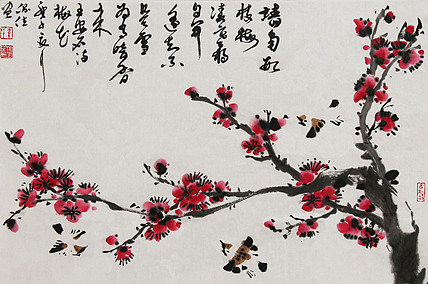 墙角数
枝梅
凌寒独
自开
遥知不
是雪
为有暗香
来
王安石诗
梅花